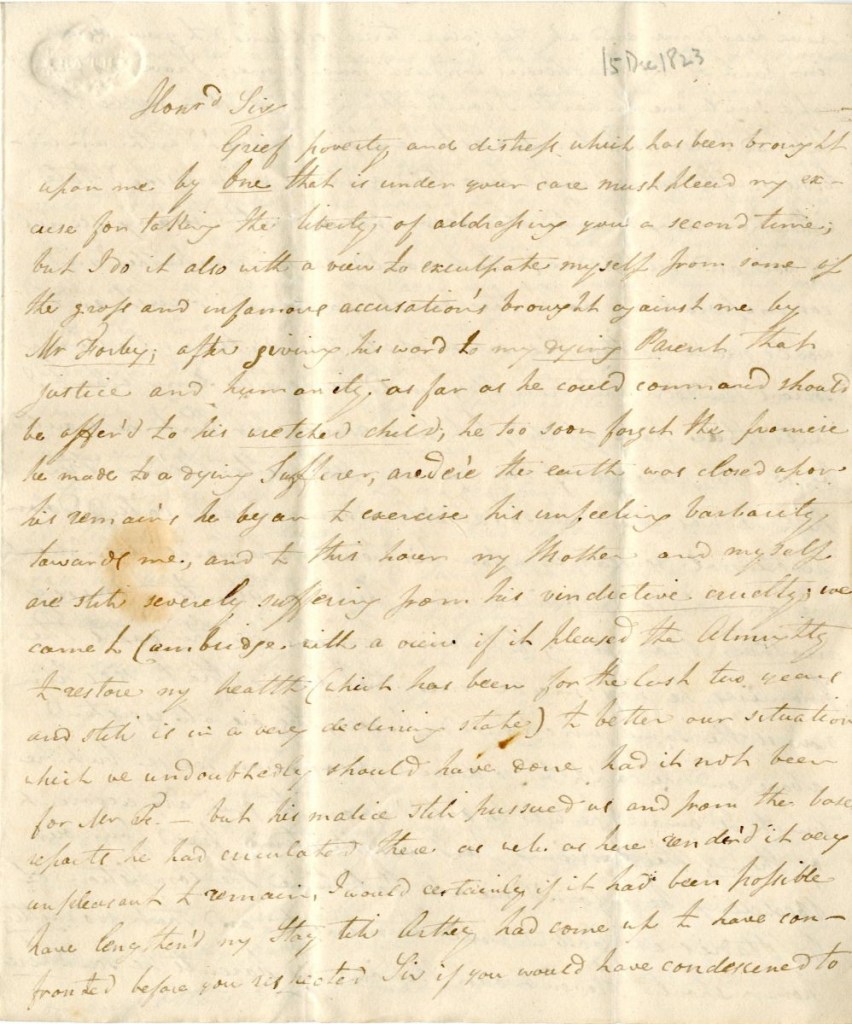 15 Dec 1823
Honrd Sir
Grief poverty and distress which has been brought
upon me by One that is under your care must plead my ex-
cuse for taking the liberty of addressing you a second time;
but I do it also with a view to exculpate myself from some of
the gross and infamous accusation's brought against me by
Mr Forby; after giving his word to my dying Parent that
justice and humanity as far as he could command should
be offer'd to his wretched child, he too soon forgot the promise
he made to a dying Sufferer, and e're the earth was closed upon
his remains he began to exercise his unfeeling barbarity
towards me, and to this hour my Mother and myself
are still severely suffering from his vindictive cruelty; we
came to Cambridge with a view if it pleased the Almighty
to restore my health (which has been for the last two years
and still is in a very declining state) to better our situation
which we undoubtedly should have done had it not been
for Mr F. - but his malice still pursued us and from the base
reports he had circulated there as well as here render'd it very
unpleasant to remain, I would certainly if it had been possible
have lengthen'd my Stay till had come up to have con-
fronted before you respected Sir if you would have condescened to